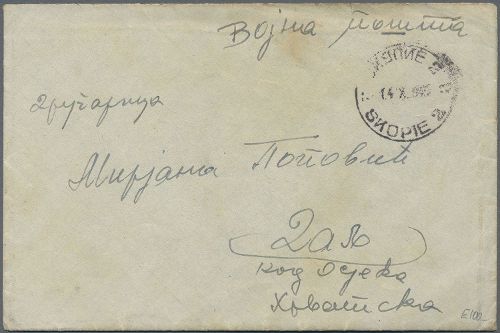 Војна пошта
СКОПИЕ 2
14 X 945
SKOPIE 2
другарица
Мирјана Поповић
Даљ
код Осјека
Хрватска
£100-